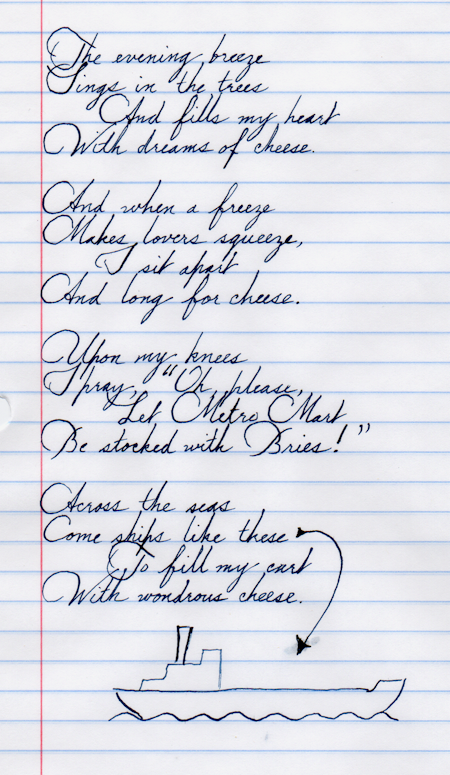 The evening breeze
Sings in the trees
And fills my heart
With dreams of cheese.
And when a freeze
Makes lovers squeeze,
I sit apart
And long for cheese.
Upon my knees
I pray, "Oh, please,
Let Metro Mart
Be stocked with Bries!"
Across the seas
Come ships like these
To fill my cart
With wondrous cheese.